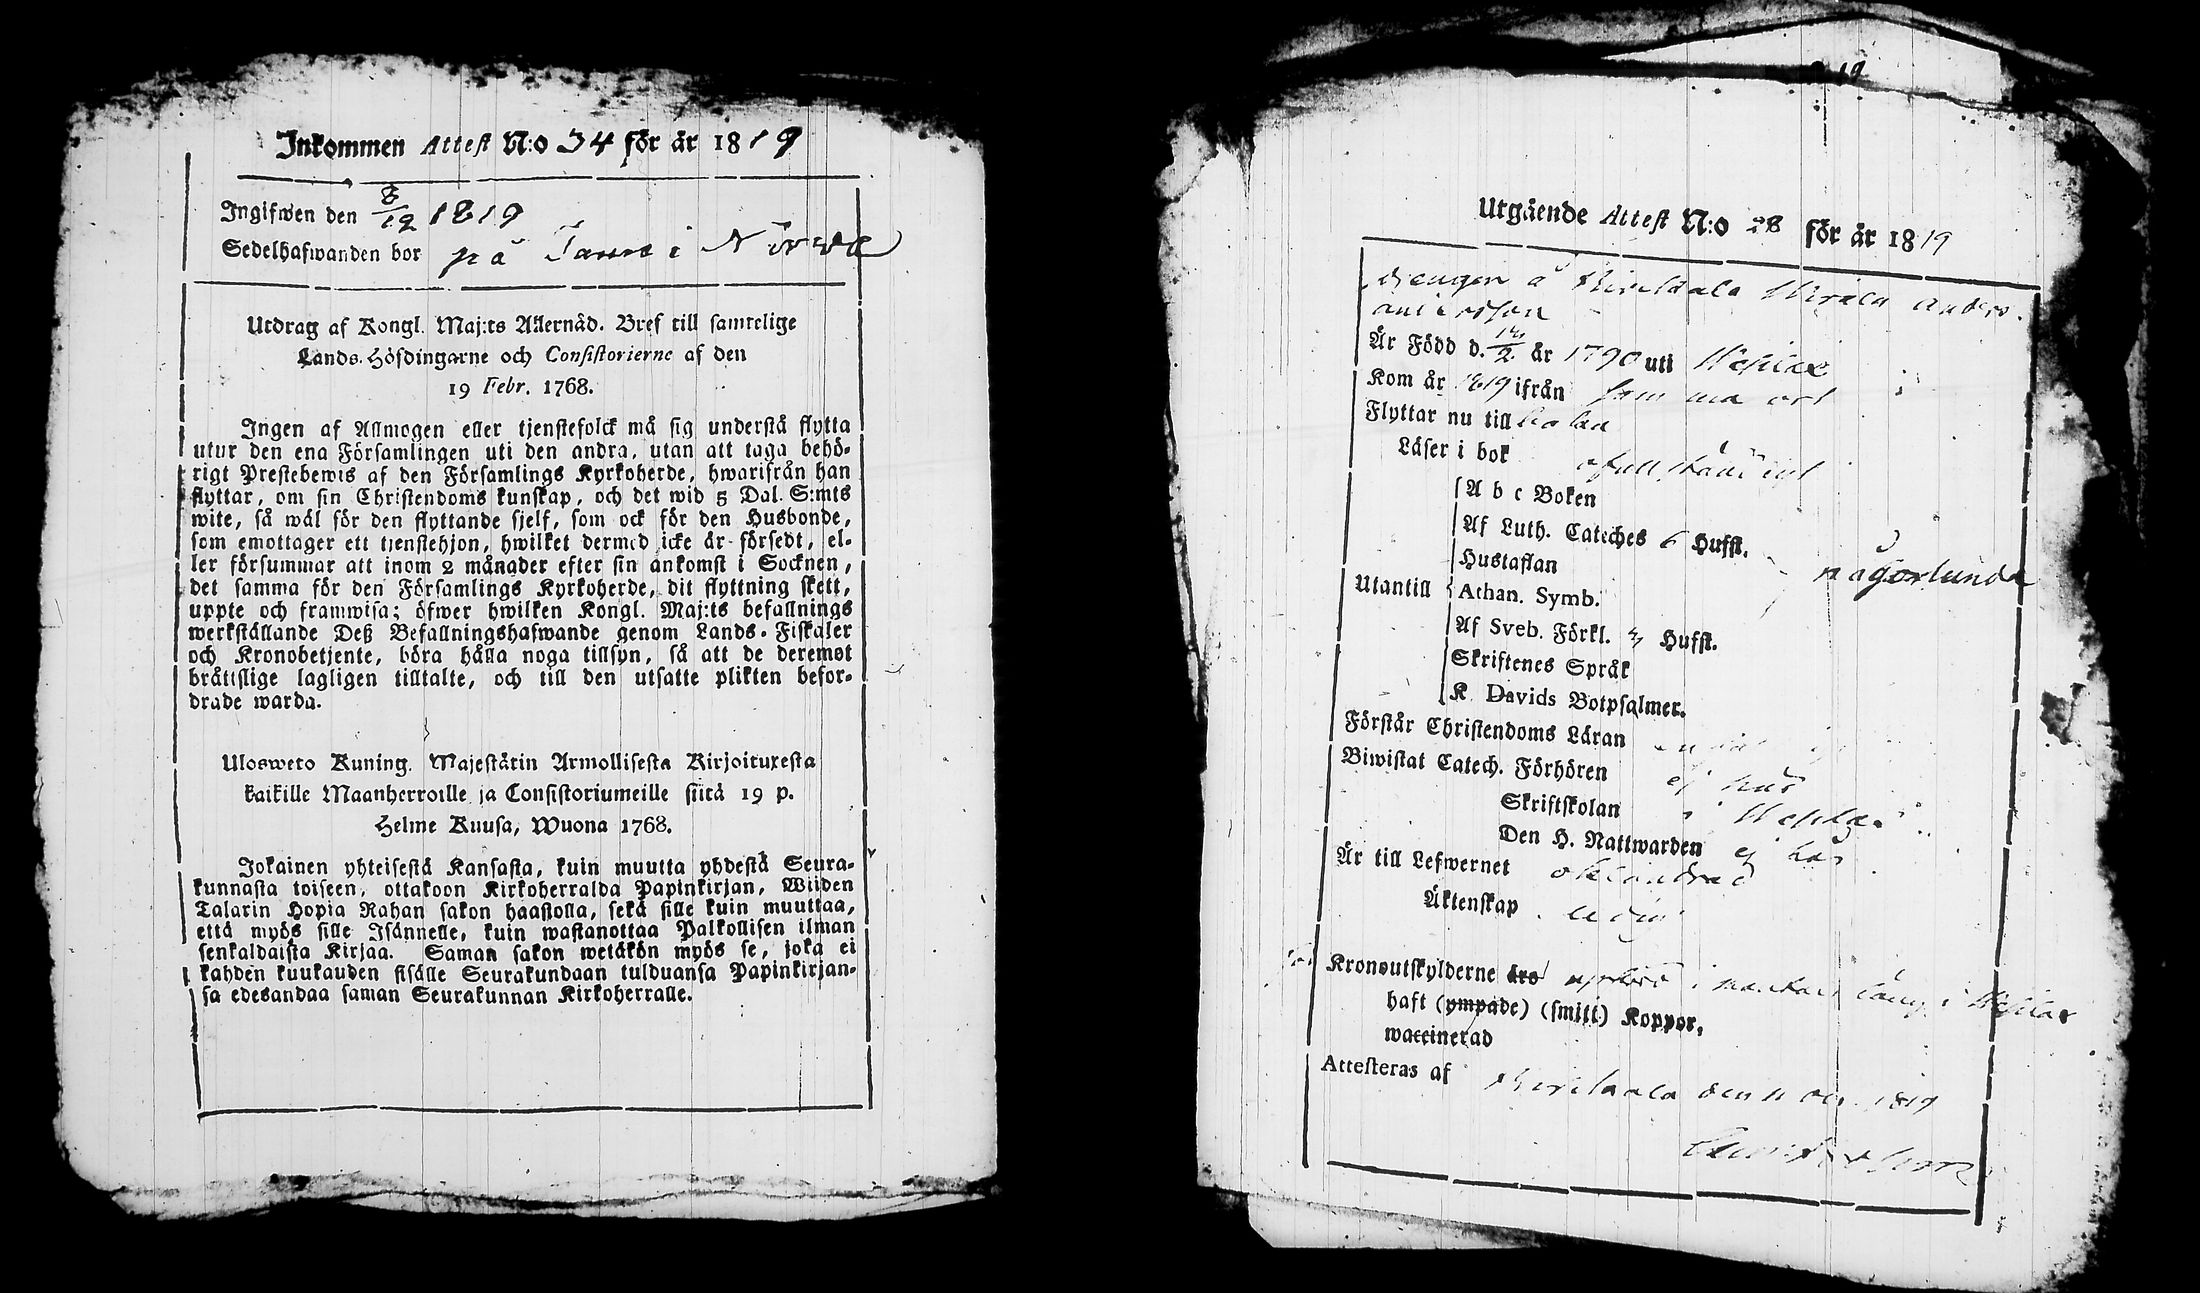 Inkommen Attest N:o 34 för år 1819
Ingifwen den 8/12 1819
Sedelhafwanden bor på i
Utdrag af Kongl. Maj:ts Allernåd. Bref till samtelige
Lands-Höfdingarne och Consistorierne af den
19 Febr. 1768.
Ingen af Allmogen eller tjenstefolck må sig understå flytta
utur den ena Församlingen uti den andra, utan att taga behö-
rigt Prestebewis af den Församlings Kyrkoherde, hwarifrån han
flyttar, om sin Christendoms kunskap, och det wid 5 Dal. S:mts
wite, så wäl för den flyttande sjelf, som ock för den Husbonde,
som emottager ett tjenstehjon, hwilket dermed icke är försedt, el-
ler försummar att inom 2 månader efter sin ankomst i Socknen,
det samma för den Församlings Kyrkoherde, dit flyttning skett,
uppte och framwisa; öfwer hwilken Kongl. Maj:ts befallnings
werkställande Deß Befallningshafwande genom Lands-Fiskaler
och Kronobetjente, böra hålla noga tillsyn, så att de deremot
bråttslige lagligen tilltalte, och till den utsatte plikten befor-
drade warda.
Ulosweto Kuning. Majestätin Armollisesta Kirjoituxesta
kaikille Maanherroille ja Consistoriumeille siitä 19 p.
Helme Kuusa, Wuona 1768.
Jokainen yhteisestä Kansasta, kuin muutta yhdestä Seura-
kunnasta toiseen, ottakoon Kirkoherralda Papinkirjan, Wiiden
Talarin Hopia Rahan sakon haastolla, sekä sille kuin muuttaa,
että myös sille Isännelle, kuin wastanottaa Palkollisen ilman
senkaldaista Kirjaa. Saman sakon wetäkön myös se, joka ei
kahden kuukauden sisälle Seurakundaan tulduansa Papinkirjan-
sa edesandaa saman Seurakunnan Kirkoherralle.
19
Utgående Attest N:o 28 för år 1819
drengen å Anders
andersson
Är Född d. /2 år 1790 uti
Kom år 1819 ifrån samma ort
Flyttar nu till
Läser i bok ofullständigt
A b c Boken
Af Luth. Cateches 6 Hufst.
Hustaflan någorlunda
Utantill Athan. Symb.
Af Sveb. Förkl. Hufst.
Skriftenes Språk
K. Davids Botpsalmer.
Förstår Christendoms Läran
Biwistat Catech. Förhören ej här
Skriftskolan i
Den H. Nattwarden ej här
Är till Lefwernet oklandrad
Äktenskap ledig
Kronoutskylderne äro i
haft (ympade) (smitt) Koppor,
waccinerad
Attesteras af den 11 1819